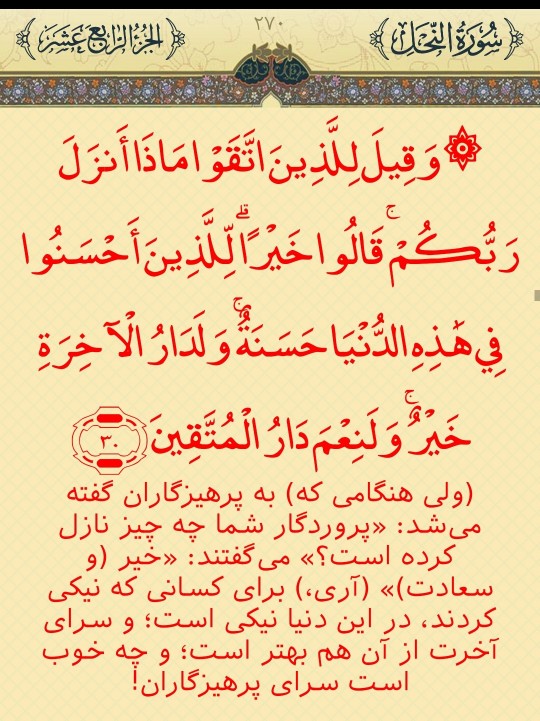 سُورَةُ النَّحْلِ ٢٧٠ الجُزْءُ الرَّابِعُ عَشَرَ
۞ وَقِيلَ لِلَّذِينَ اتَّقَوْا مَاذَا أَنزَلَ
رَبُّكُمْ ۚ قَالُوا خَيْرًا ۗ لِّلَّذِينَ أَحْسَنُوا
فِي هَٰذِهِ الدُّنْيَا حَسَنَةٌ ۚ وَلَدَارُ الْآخِرَةِ
خَيْرٌ ۚ وَلَنِعْمَ دَارُ الْمُتَّقِينَ ٣٠
(ولی هنگامی که) به پرهیزگاران گفته
می‌شد: «پروردگار شما چه چیز نازل
کرده است؟» می‌گفتند: «خیر (و
سعادت)» (آری،) برای کسانی که نیکی
کردند، در این دنیا نیکی است؛ و سرای
آخرت از آن هم بهتر است؛ و چه خوب
است سرای پرهیزگاران!